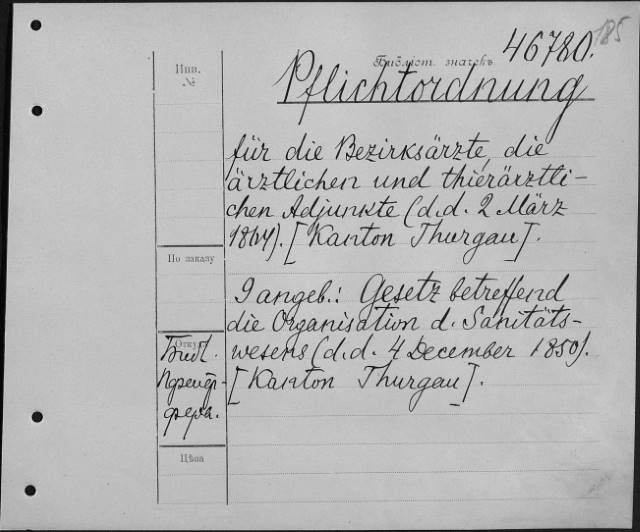 185
46780.
Библіот. значекъ
Инв.
№
Pflichtordnung
für die Bezirksärzte, die
ärztlichen und thierärztli-
chen Adjunkte (d.d. 2 März
[Kanton Thurgau].
По заказу
9 angeb.: Gesetz betreffend
die Organisation d. Sanitäts-
wesens (d.d. 4 December 1850).
[Kanton Thurgau].
Откуда
Библ.
Цѣна